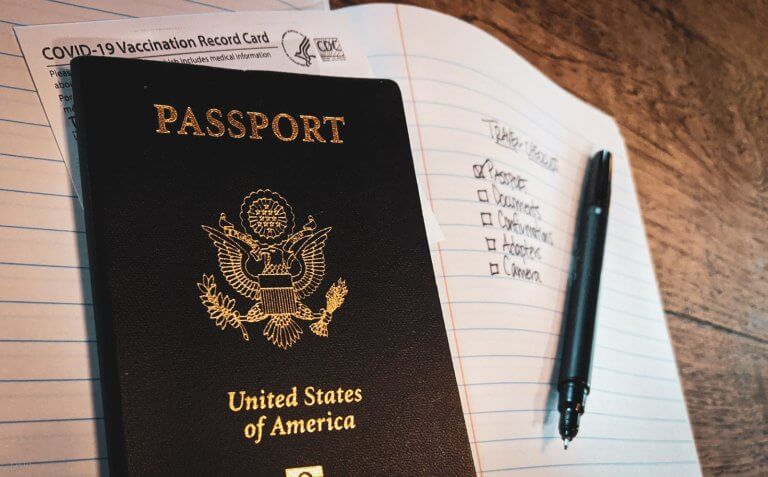 COVID-19 Vaccination Record Card
CDC
includes medical information
PASSPORT
United States
of America
TRAVEL CHECKLIST
PASSPORT
Documents
Confirmations
Adapters
Camera